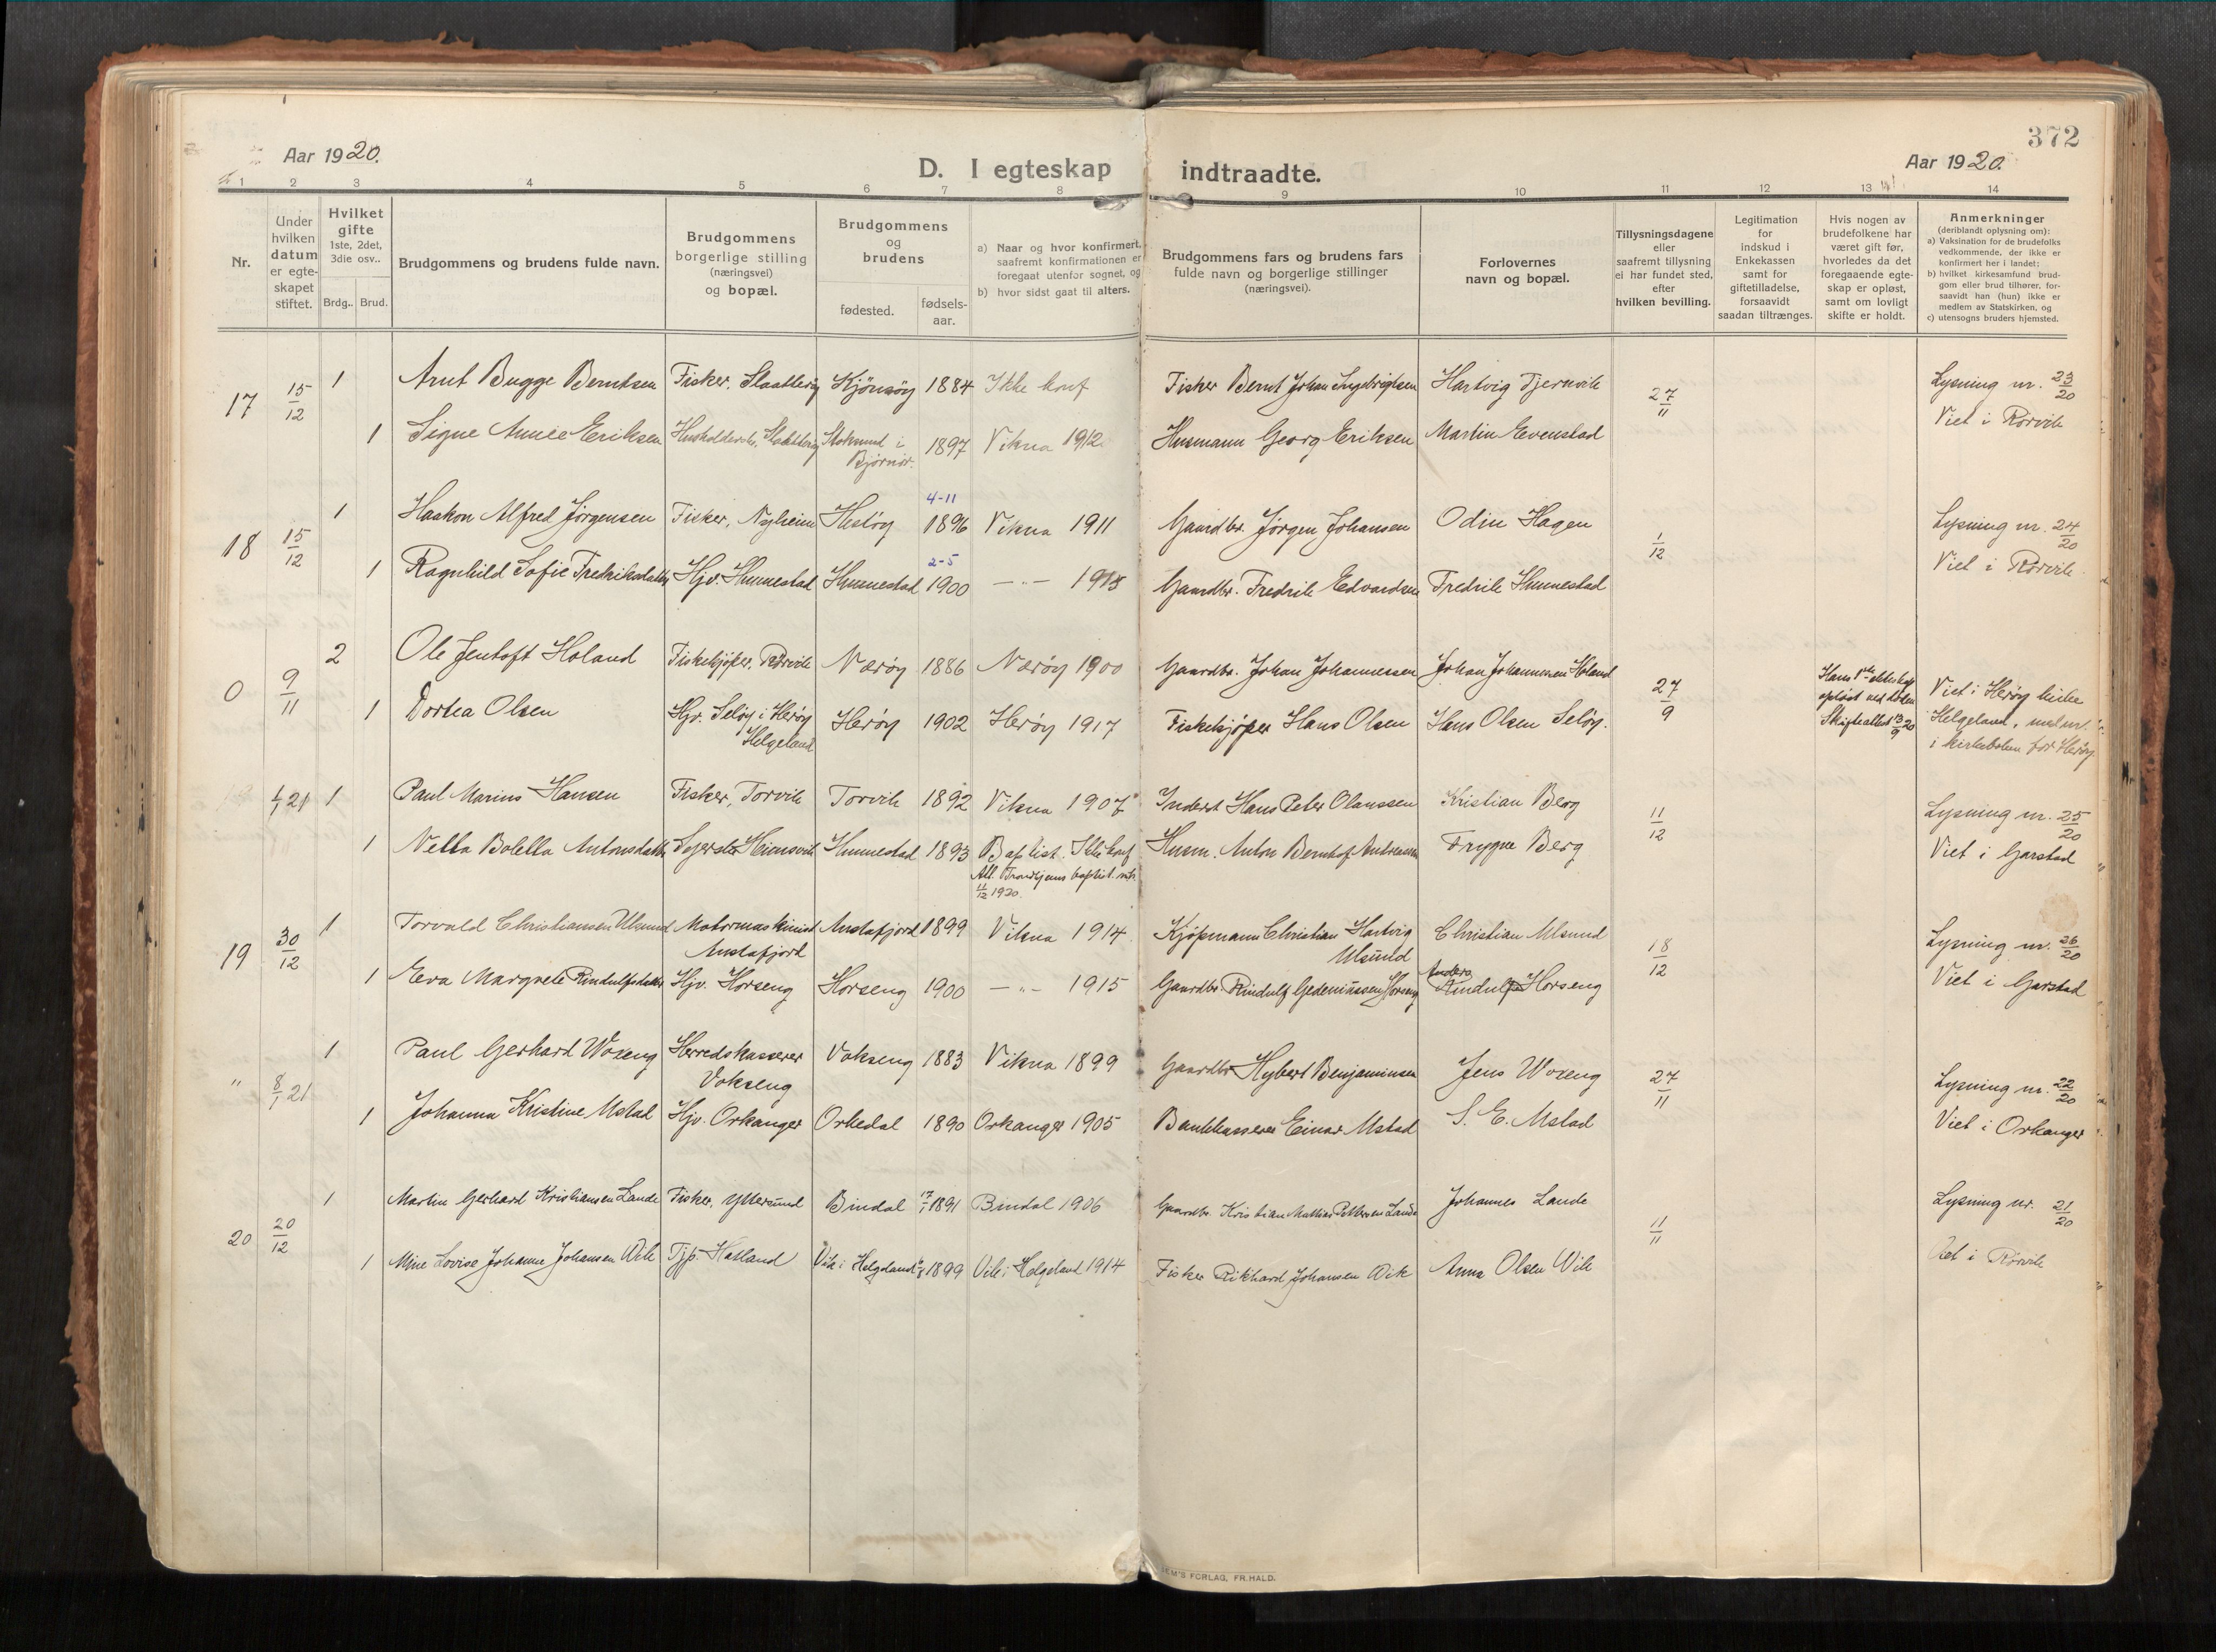 372
Aar 1920.
D. I egteskap indtraadte.
Aar 1920.
1 2 3 4 5 6 7 8 9 10 11 12 13 14
Nr.
Under
hvilken
datum
er egte-
skapet
stiftet.
Hvilket
gifte
1ste, 2det,
3die osv..
Brdg.. Brud.
Brudgommens og brudens fulde navn.
Brudgommens
borgerlige stilling
(næringsvei)
og bopæl.
Brudgommens
og
brudens
fødested.
fødsels-
aar.
a) Naar og hvor konfirmert,
saafremt konfirmationen er
foregaat utenfor sognet, og
b) hvor sidst gaat til alters.
Brudgommens fars og brudens fars
fulde navn og borgerlige stillinger
(næringsvei).
Forlovernes
navn og bopæl.
Tillysningsdagene
eller
saafremt tillysning
ei har fundet sted,
efter
hvilken bevilling.
Legitimation
for
indskud i
Enkekassen
samt for
giftetilladelse,
forsaavidt
saadan tiltrænges.
Hvis nogen av
brudefolkene har
været gift før,
hvorledes da det
foregaaende egte-
skap er opløst,
samt om lovligt
skifte er holdt.
Anmerkninger
(deriblandt oplysning om):
a) Vaksination for de brudefolks
vedkommende, der ikke er
konfirmert her i landet;
b) hvilket kirkesamfund brud-
gom eller brud tilhører, for-
saavidt han (hun) ikke er
medlem av Statskirken, og
c) utensogns bruders hjemsted.
17 15/12 1 Arnt Bugge Berntsen Fisker, Slaattevig Kjönsöy 1884 Ikke konf Fisker Bernt Johan Ingebrigtsen Hartvig Tjernvik 27/11 Lysning nr. 23/20
1 Signe Annie Eriksen Husholderske, Slaattevig Stoksund i 1897 Vikna 1912 Husmann Georg Eriksen Martin Evenstad Viet i Rörvik
Björnör.
4-11
18 15/12 1 Haakon Alfred Jörgensen Fisker, Nyheim Hestöy 1896 Vikna 1911 Gaardbr. Jörgen Johansen Odin Hagen 1/12 Lysning nr. 24/20
2-5
1 Ragnhild Sofie Fredriksdatter Hjv. Hunnestad Hunnestad 1900 —"— 1915 Gaardbr. Fredrik Edvardsen Fredrik Hunnestad Viet i Rörvik
0 9/11 2 Ole Jentoft Holand Fiskekjöper, Rörvik Næröy 1886 Næröy 1900 Gaardbr. Johan Johannessen Johan Johannesen Holand 27/9 Hans 1ste ekteskap Viet i Heröy kirke
oplöst ved döden
1 Dortea Olsen Hjv. Selöy i Heröy Heröy 1902 Heröy 1917 Fiskekjöper Hans Olsen Hans Olsen Selöy. Skifteattest 13/9 20 Helgeland, med nr.
Helgeland i kirkeboken for Heröy
4/1 21 1 Paul Marius Hansen Fisker, Torvik Torvik 1892 Vikna 1907 Inderst Hans Peter Olaussen Kristian Berg 11/12 Lysning nr. 25/20
1 Netta Boletta Antonsdatter Heimsvik Hunnestad 1893 Baptist. Ikke konf Husm. Anton Berntof Andreassen Trygve Berg Viet i Garstad
Att. Trondhjems baptist. m.
11/12 1920.
19 30/12 1 Torvald Christiansen Ulsund Motormaskinist Austafjord 1899 Vikna 1914 Kjöpmann Christian Hartvig Christian Ulsund 18/12 Lysning nr. 26/20
Austafjord Ulsund
Anders
1 Eva Margrete Rindulfsdatter Hjv. Horseng Horseng 1900 —"— 1915 Gaardbr. Rindulf Gedeminssen Horseng Rindulf Horseng Viet i Garstad
" 8/1 21 1 Paul Gerhard Woxeng Herredskasserer Vokseng 1883 Vikna 1899 Gaardbr Hybert Benjaminsen Jens Woxeng 27/11 Lysning nr. 22/20
Vokseng
1 Johanna Kristine Mstad Hjv. Orkanger Orkedal 1890 Orkanger 1905 Bankkasserer Einar Mstad S. E. Mstad Viet i Orkanger
20 20/12 1 Martin Gerhard Kristiansen Lande Fisker, Yttersund Bindal 17/1 1891 Bindal 1906 Gaardbr. Kristian Mathias Pettersen Lande Johannes Lande 11/11 Lysning nr. 21/20
1 Mine Lovise Johanne Johansen Wik Tjp. Hatland Vik i Helgeland 1899 Vik i Helgeland 1914 Fisker Rikhard Johansen Wik Anna Olsen Wik Viet i Rörvik
SEM'S FORLAG, FR.HALD.